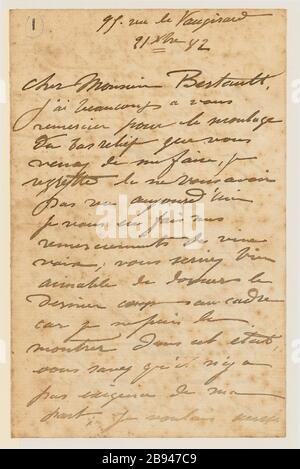 1
95. rue de Vaugirard
21 Xbre 82
Cher Monsieur Bertault,
J'ai beaucoup a vous
remercier pour le moulage
du bas relief que vous
venez de me faire, je
regrette de ne vous avoir
pas vu aujourd'hui
je vous en fais mes
remerciements de vive
voix, vous seriez bien
aimable de donner le
dernier coup au cadre
car je ne puis le
montrer dans cet état,
vous savez qu'il n'y a
pas exigence de ma
part, je voulais
alamy
Image ID: 2B947C9
www.alamy.com